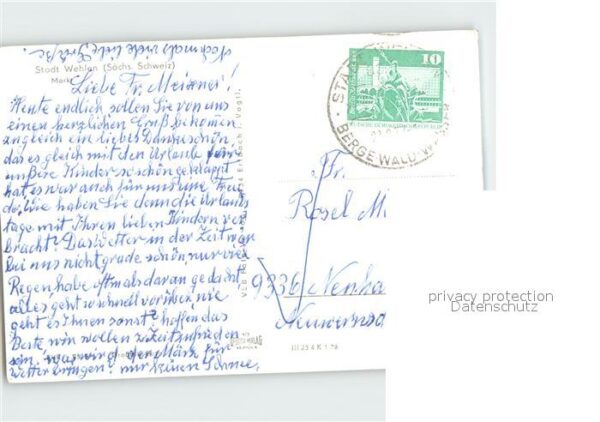 Nochmals viele liebe Grüße.
Stadt Wehlen (Sächs. Schweiz)
Markt
Liebe Fr. Meixner!
Heute endlich sollen Sie von uns
einen herzlichen Gruß bekommen
zugleich ein liebes Dankeschön,
das es gleich mit den Urlaub
unßere Kinder so schön geklappt
hat es war auch für uns eine Freu
de. Wie haben Sie denn die Urlaubs
tage mit Ihren lieben Kindern ver
bracht? Das Wetter in der Zeit war
bei uns nicht grade schön nur viel
Regen, habe oftmals daran gedacht
alles geht so schnell vorüber, wie
geht es Ihnen sonst? hoffen das
Beste wir wollen z. Zeit zufrieden
sein, was wird der März für
Wetter bringen? nur keinen Schnee,
10
STADT
BERGE WALD
Fr.
Rosel M
9336
III 25 4 K 1 76
privacy protection
Datenschutz